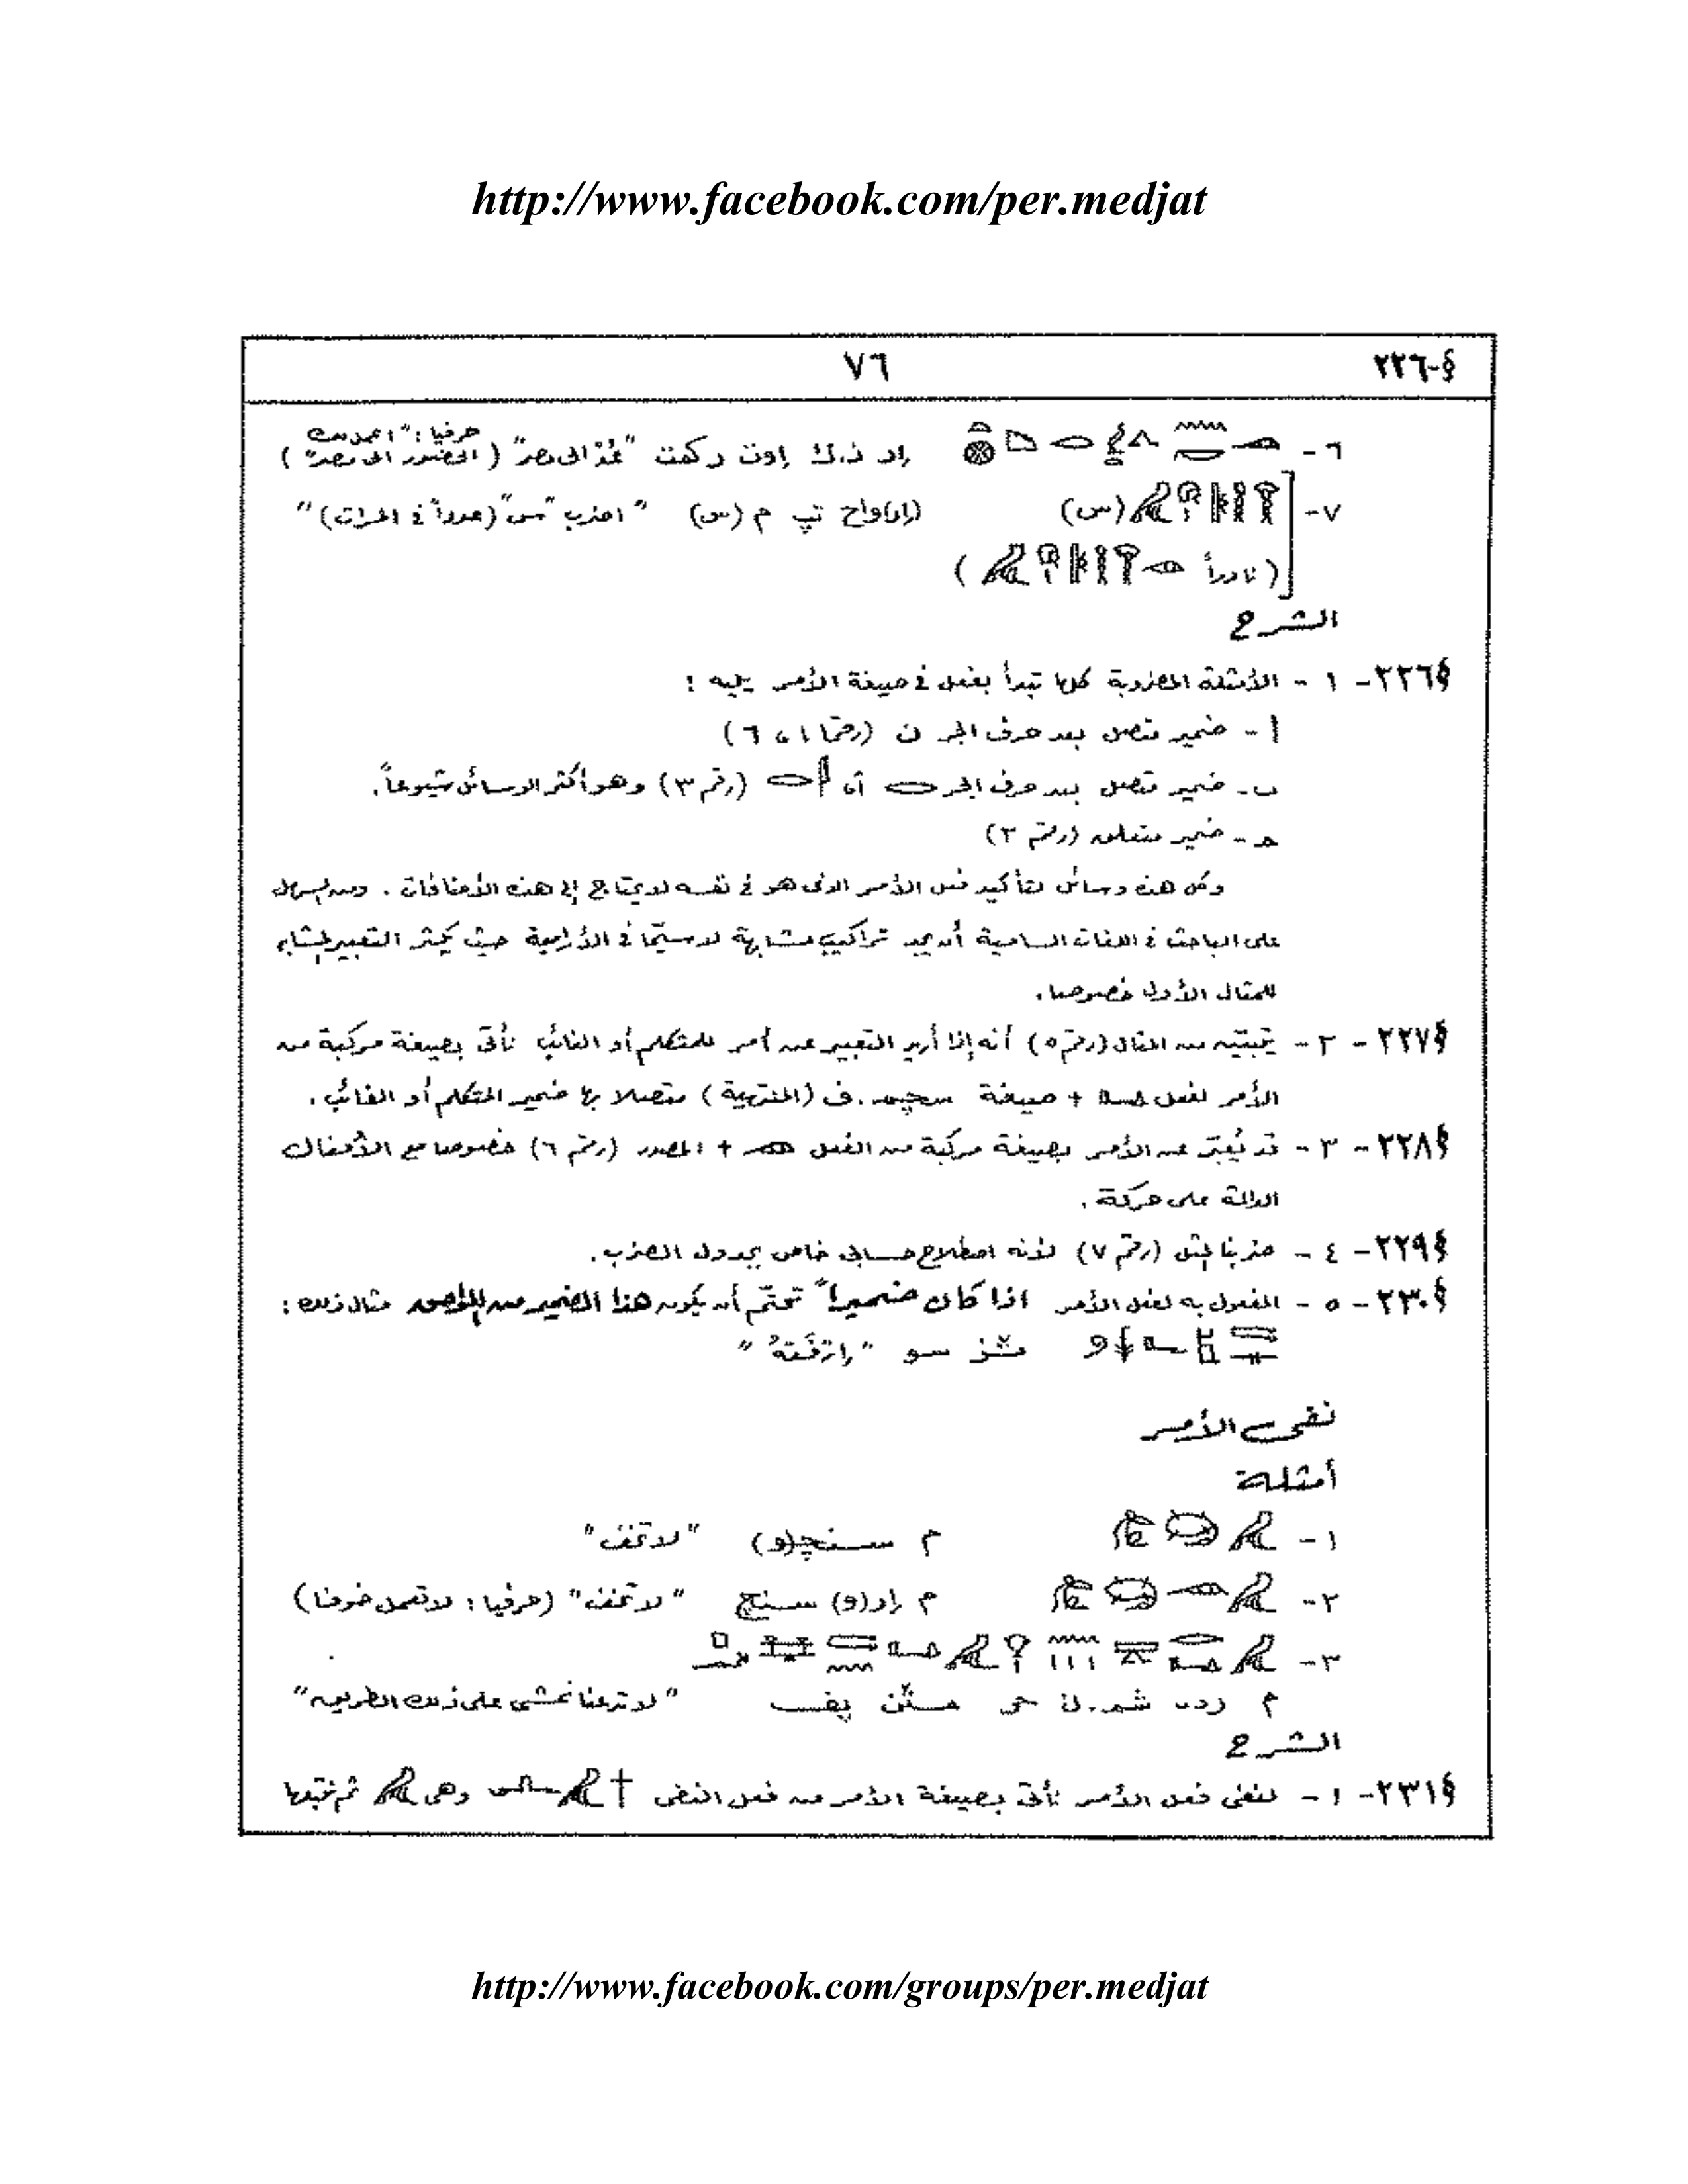 http://www.facebook.com/per.medjat
§-٢٢٦ ٧٦
٦- إر ن.ك إون ر كمت "عُدْ إلى مصر" (حرفيا: "اعمل لك الحضور إلى مصر")
٧- (س) (إ)واح تپ م (س) "اضرب "س" (عدداً في المرات)"
(نادراً )
الشرح
§٢٢٦- ١- الأمثلة المضروبة كلها تبدأ بفعل في صيغة الأمر يليه :
أ- ضمير متصل بعد حرف الجر ن (رقما ١، ٦)
ب- ضمير متصل بعد حرف الجر أو (رقم ٣) وهو أكثر الوسائل شيوعاً.
ﺣ- ضمير متعلق (رقم ٢)
وكل هذه وسائل لتأكيد فعل الأمر الذى هو في نفسه لا يحتاج إلى هذه الأضافات . ومن السهل
على الباحث في اللغات السامية أن يجد تراكيب مشابهة لا سيما في الأرامية حيث يكثر التعبير المشابه
للمثال الأول خصوصا.
§٢٢٧- ٢- يتبين من المثال (رقم ٥) أنه إذا أريد التعبير عن أمر للمتكلم أو الغائب نأتى بصيغة مركبة من
الأمر لفعل + صيغة سچم.ف (المنتهية) متصلا بها ضمير المتكلم أو الغائب .
§٢٢٨- ٣- قد نُعبّر عن الأمر بصيغة مركبة من الفعل + المصدر (رقم ٦) خصوصا مع الأفعال
الدالة على حركة .
§٢٢٩- ٤- ضربنا المثل (رقم ٧) لأنه اصطلاح حسابى خاص بجدول الضرب.
§٢٣٠- ٥- المفعول به لفعل الأمر اذا كان ضميراً تحتّم أن يكون هذا الضمير من مثال ذلك :
سو "
نفى الأمر
أمثلة
١- م سنچ(و) "لا تخف"
٢- م إر(و) سنچ "لا تخف" (حرفيا : لا تعمل خوفا)
٣-
م ردى شم.ن حر متن پف "لا تدعنا نمشى على ذلك الطريق"
الشرح
§٢٣١- ١- لنفى فعل الأمر نأتى بصيغة الأمر من فعل النفى وهى ثم نتبعها
http://www.facebook.com/groups/per.medjat